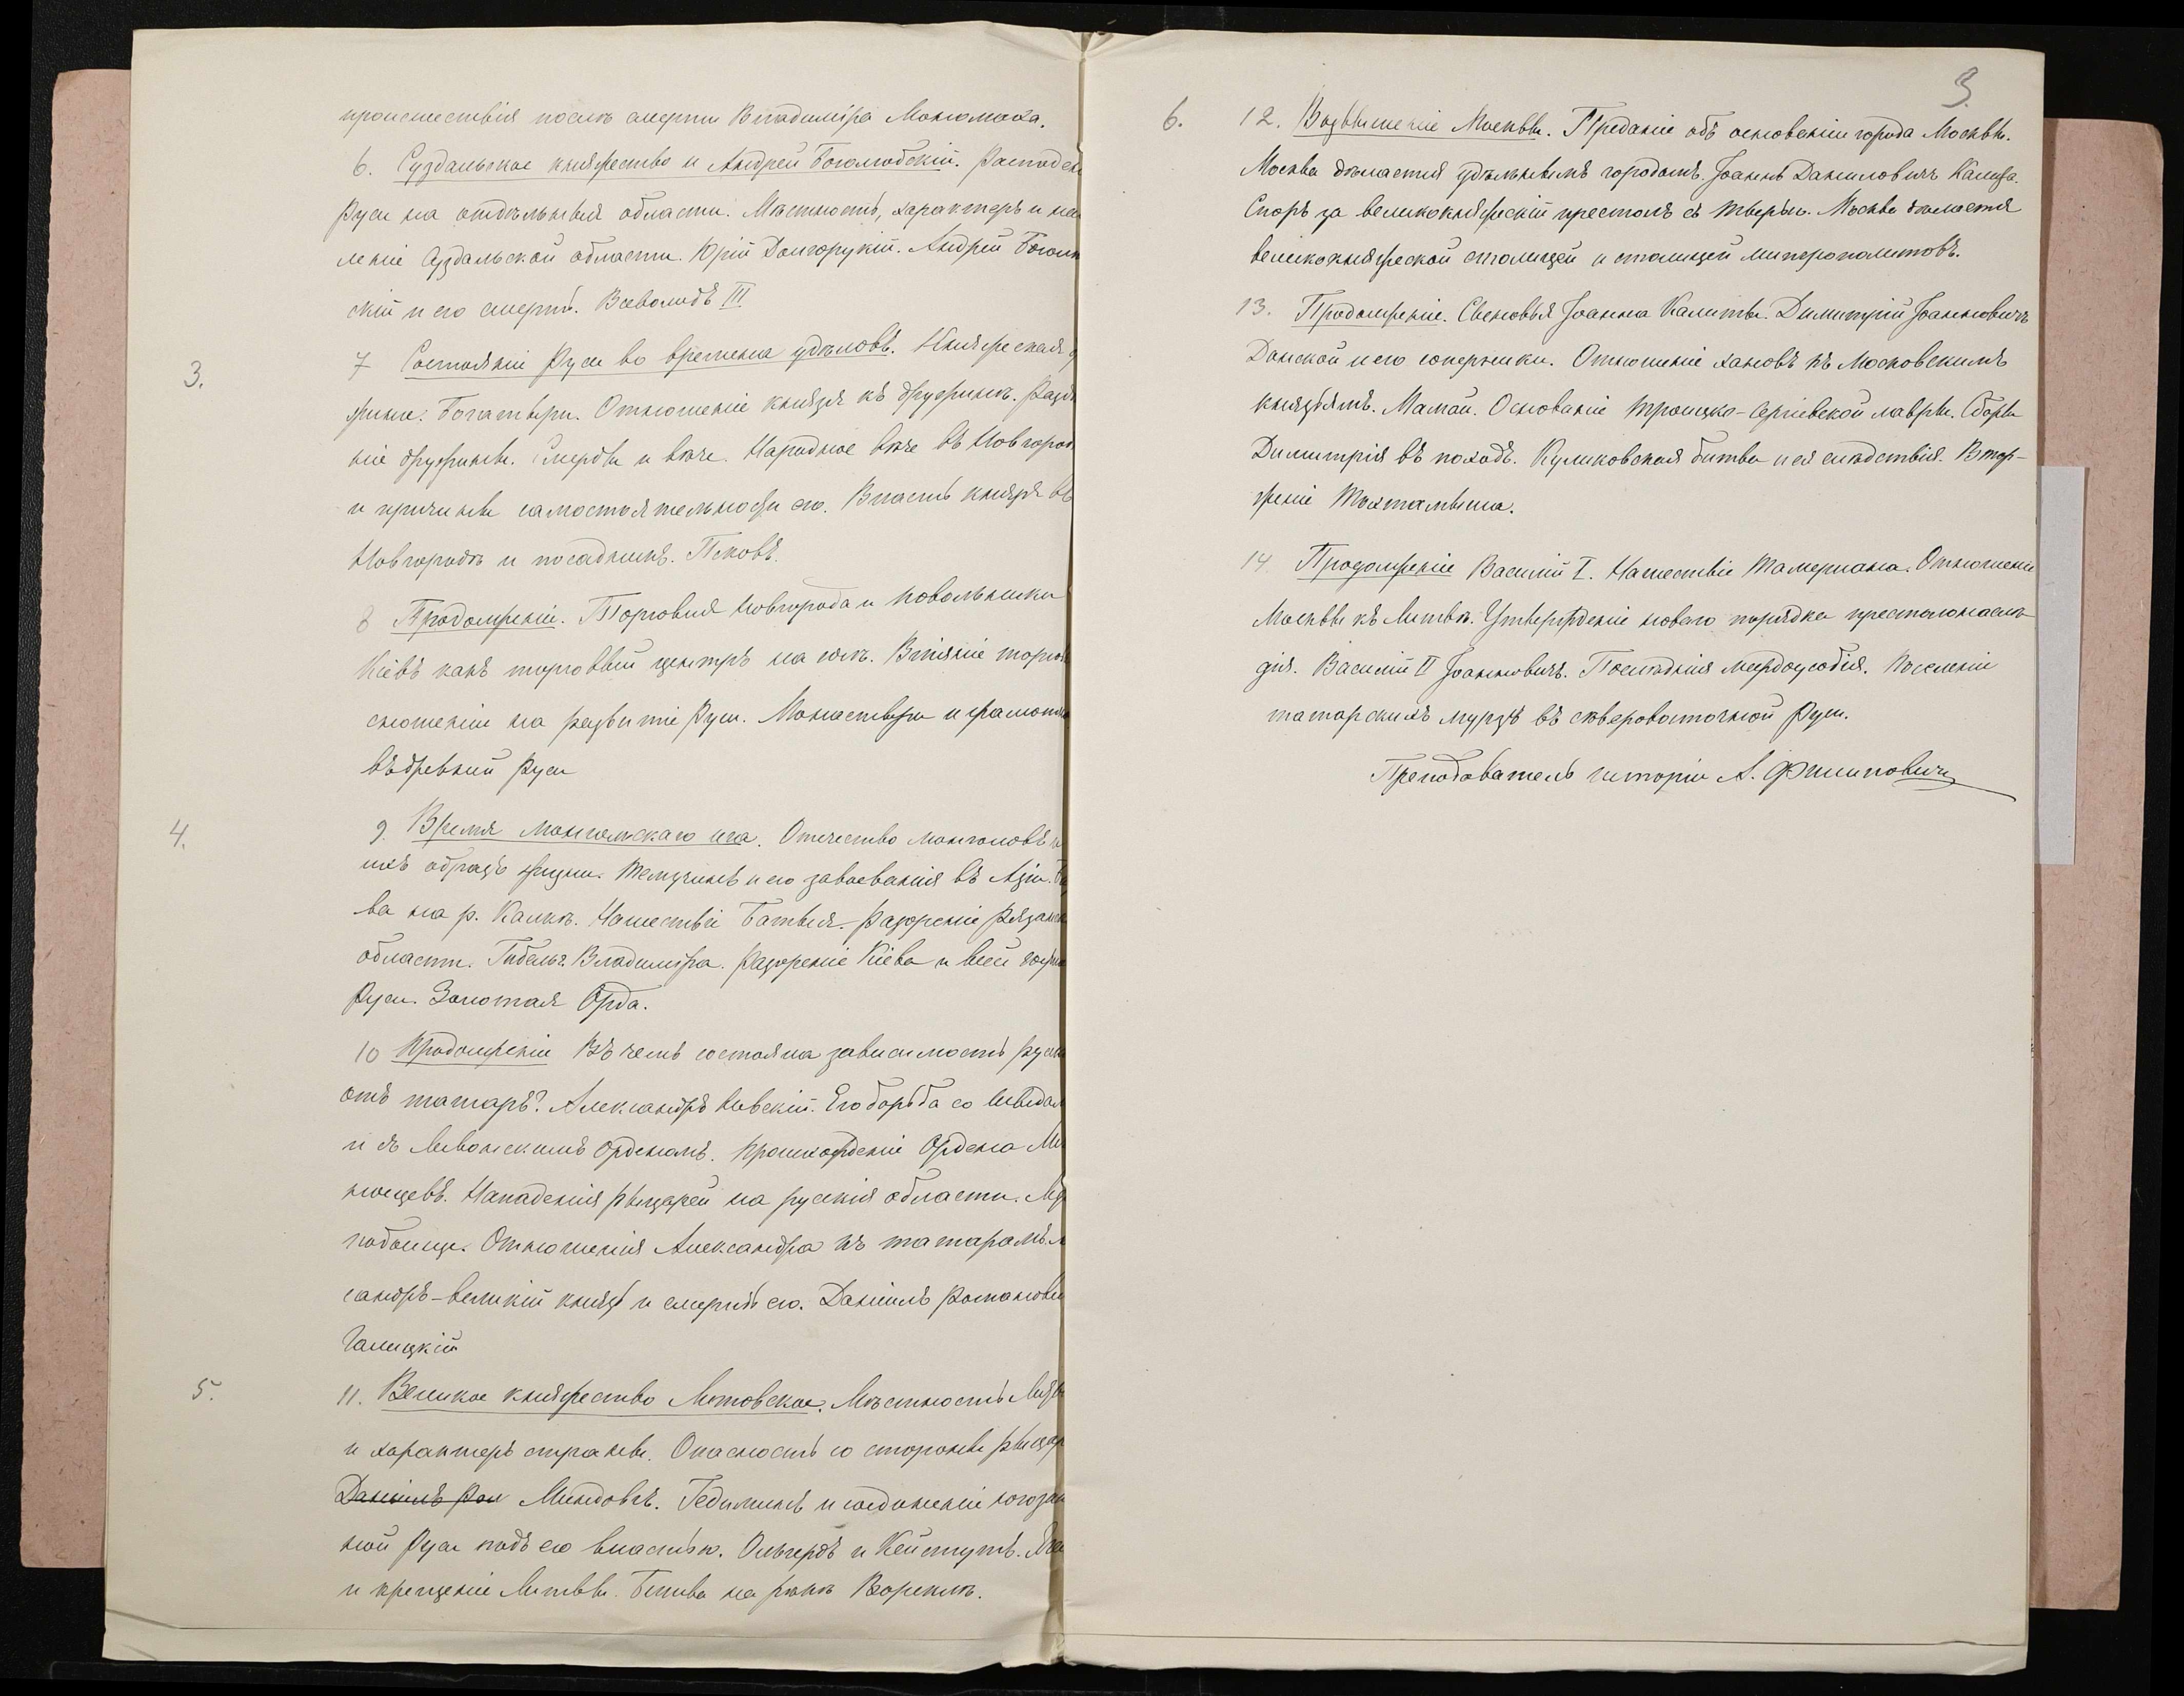 происшествія послѣ смерти Владиміра Мономаха.
6. Суздальское княжество и Андрей Боголюбскій. Распаден
Руси на отдѣльныя области. Мѣстность, характеръ и на
леніе Суздальской области. Юрій Долгорукій. Андрей Боголю
скій и его смерть. Всеволодъ III
3.
7 Состояніе Руси во времена удѣловъ. Княжеская д
жина. Богатыри. Отношеніе князя къ дружинѣ.
ніе дружины. Смерды и вѣче. Народное вѣче въ Новгород
и причины самостоятельности его. Власть князя въ
Новгородѣ и посадникъ. Псковъ.
8 Продолженіе. Торговля Новгорода и повольники
Кіевъ какъ торговый центръ на югѣ. Вліяніе торгов
сношеній на развитіе Руси. Монастыри и грамотн
въ древней Руси
4.
9. Время монгольскаго ига. Отечество монголовъ и
ихъ образъ жизни. Темучинъ и его завоеванія въ Азіи. Би
ва на р. Калкѣ. Нашествіе Батыя. Разореніе Рязанс
области. Гибель г. Владиміра. Разореніе Кіева и всей южн
Руси. Золотая Орда.
10 Продолженіе Въ чемъ состояла зависимость русск
отъ татаръ? Александръ Невскій. Его борьба со шведам
и съ Ливонскимъ Орденомъ. Происхожденіе Ордена Ме
носцевъ. Нападенія рыцарей на русскія области. Лед
побоище. Отношенія Александра къ татарамъ. Ал
сандръ - великій князь и смерть его. Даніилъ Романови
Галицкій
5.
11. Великое княжество Литовское. Мѣстность Литв
и характеръ страны. Опасность со стороны рыцар
Даніилъ Ром Миндовгъ. Гедиминъ и соединеніе югозап
ной Руси подъ его властью. Ольгердъ и Кейстутъ. Яга
и крещеніе Литвы. Битва на рѣкѣ Ворсклѣ.
3.
6.
12. Возвышеніе Москвы. Преданіе объ основаніи города Москвы.
Москва дѣлается удѣльнымъ городомъ. Іоаннъ Даниловичъ Калита.
Споръ за великокняжескій престолъ съ Тверью. Москва дѣлается
великокняжеской столицей и столицей митрополитовъ.
13. Продолженіе. Сыновья Іоанна Калиты. Димитрій Іоанновичъ
Донской и его соперники. Отношеніе хановъ къ Московскимъ
князьямъ. Мамай. Основаніе Троицко-Сергіевской лавры. Сборы
Димитрія въ походъ. Куликовская битва и ея слѣдствія. Втор-
женіе Тохтамыша.
14. Продолженіе Василій I. Нашествіе Тамерлана. Отношеніе
Москвы къ Литвѣ. Утвержденіе новаго порядка престолонаслѣ
дія. Василій II Іоанновичъ. Послѣднія междоусобія. Поселеніе
татарскихъ мурзъ въ сѣверовосточной Руси.
Преподаватель исторіи А. Филиповичъ